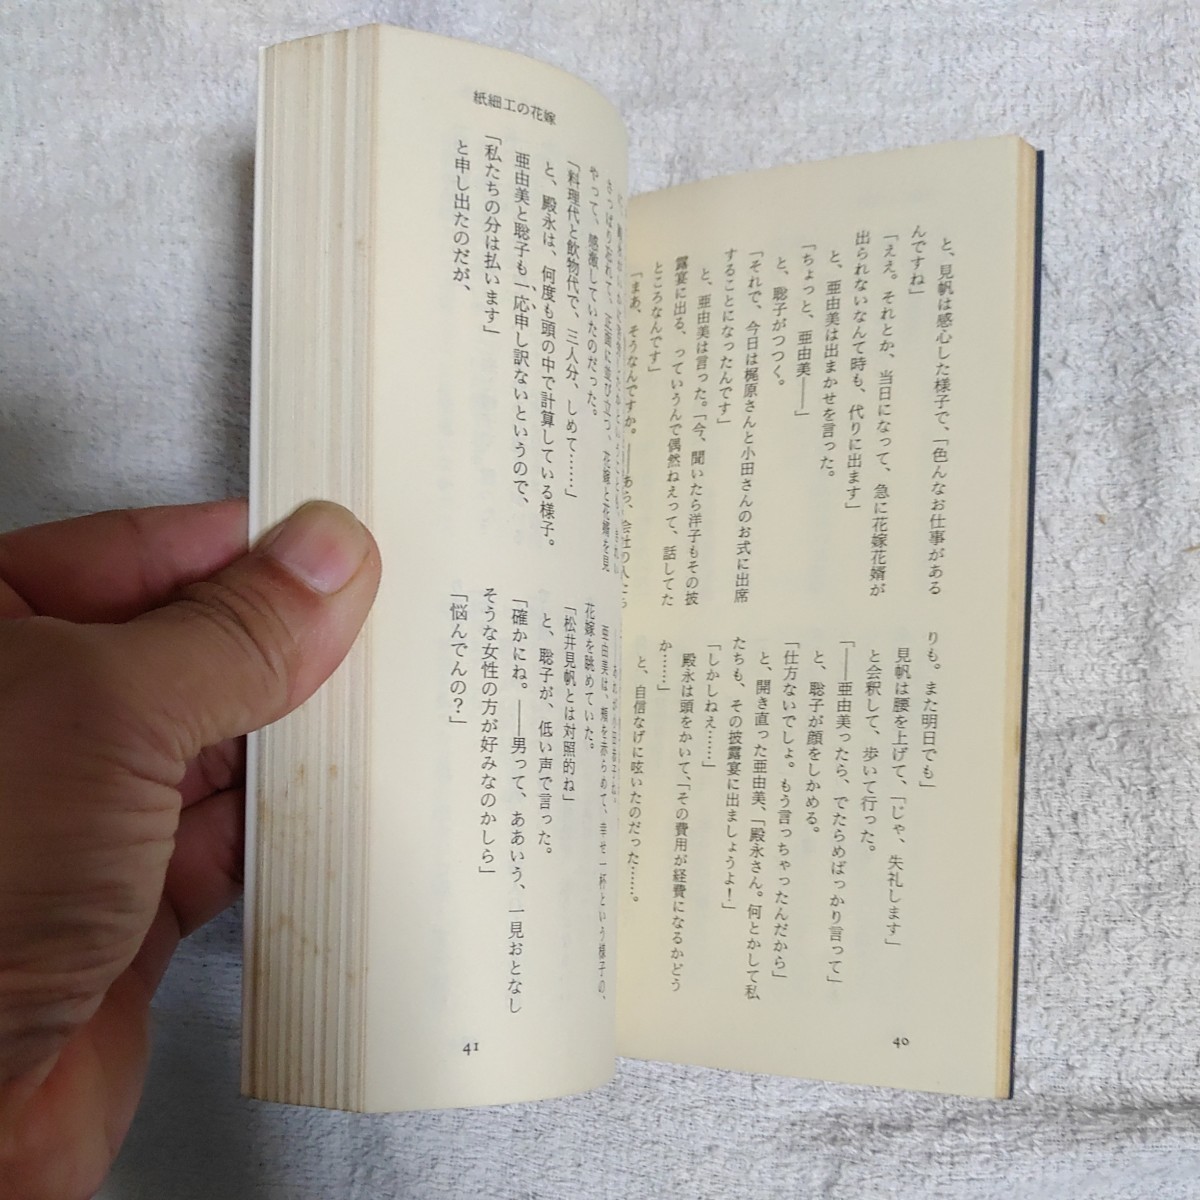 と、見帆は感心した様子で、「色んなお仕事がある
んですね」
「ええ。それとか、当日になって、急に花嫁花婿が
出られないなんて時も、代りに出ます」
と、亜由美は出まかせを言った。
「ちょっと、亜由美――」
と、聡子がつつく。
「それで、今日は梶原さんと小田さんのお式に出席
することになったんです」
と、亜由美は言った。「今、聞いたら洋子もその披
露宴に出る、っていうんで偶然ねえって、話してた
ところなんです」
「まあ、そうなんですか。――あら、会社の人たち
りも。また明日でも」
見帆は腰を上げて、「じゃ、失礼します」
と会釈して、歩いて行った。
「――亜由美ったら、でたらめばっかり言って」
と、聡子が顔をしかめる。
「仕方ないでしょ。もう言っちゃったんだから」
と、開き直った亜由美、「殿永さん。何とかして私
たちも、その披露宴に出ましょうよ！」
「しかしねえ……」
殿永は頭をかいて、「その費用が経費になるかどう
か……」
と、自信なげに呟いたのだった……。
40
紙細工の花嫁
さっぱり忘れて、正面に並び立つ、花嫁と花婿を見
やって、感激していたのだった。
「料理代と飲物代で、三人分、しめて……」
と、殿永は、何度も頭の中で計算している様子。
亜由美と聡子も、一応申し訳ないというので、
「私たちの分は払います」
と申し出たのだが、
亜由美は、頬を赤らめて、幸せ一杯という様子の、
花嫁を眺めていた。
「松井見帆とは対照的ね」
と、聡子が、低い声で言った。
「確かにね。――男って、ああいう、一見おとなし
そうな女性の方が好みなのかしら」
「悩んでんの？」
41